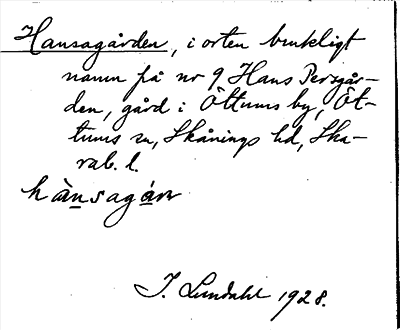 Hansagården, i orten brukligt
namn på nr 9 Hans Persgår-
den, gård i Öttums by, Öt-
tums sn, Skånings hd, Ska-
rab. l.
hànsagán
I. Lundahl 1928.